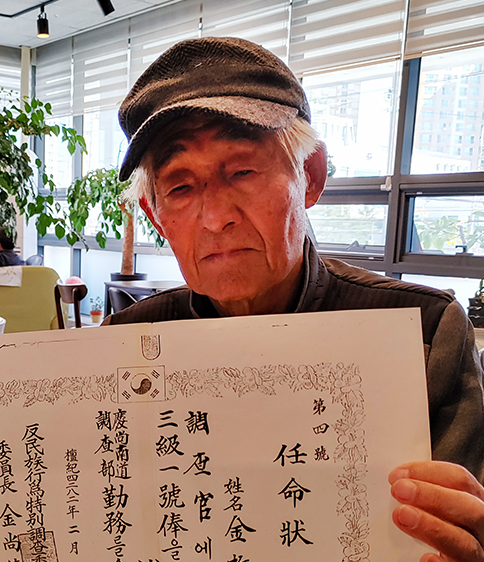 第四號
任命狀
姓名 金
調査官에
三級一號俸을
慶尙南道
調査部 勤務를
檀紀四二八二年二月
反民族行爲特別調査
委員長 金尙